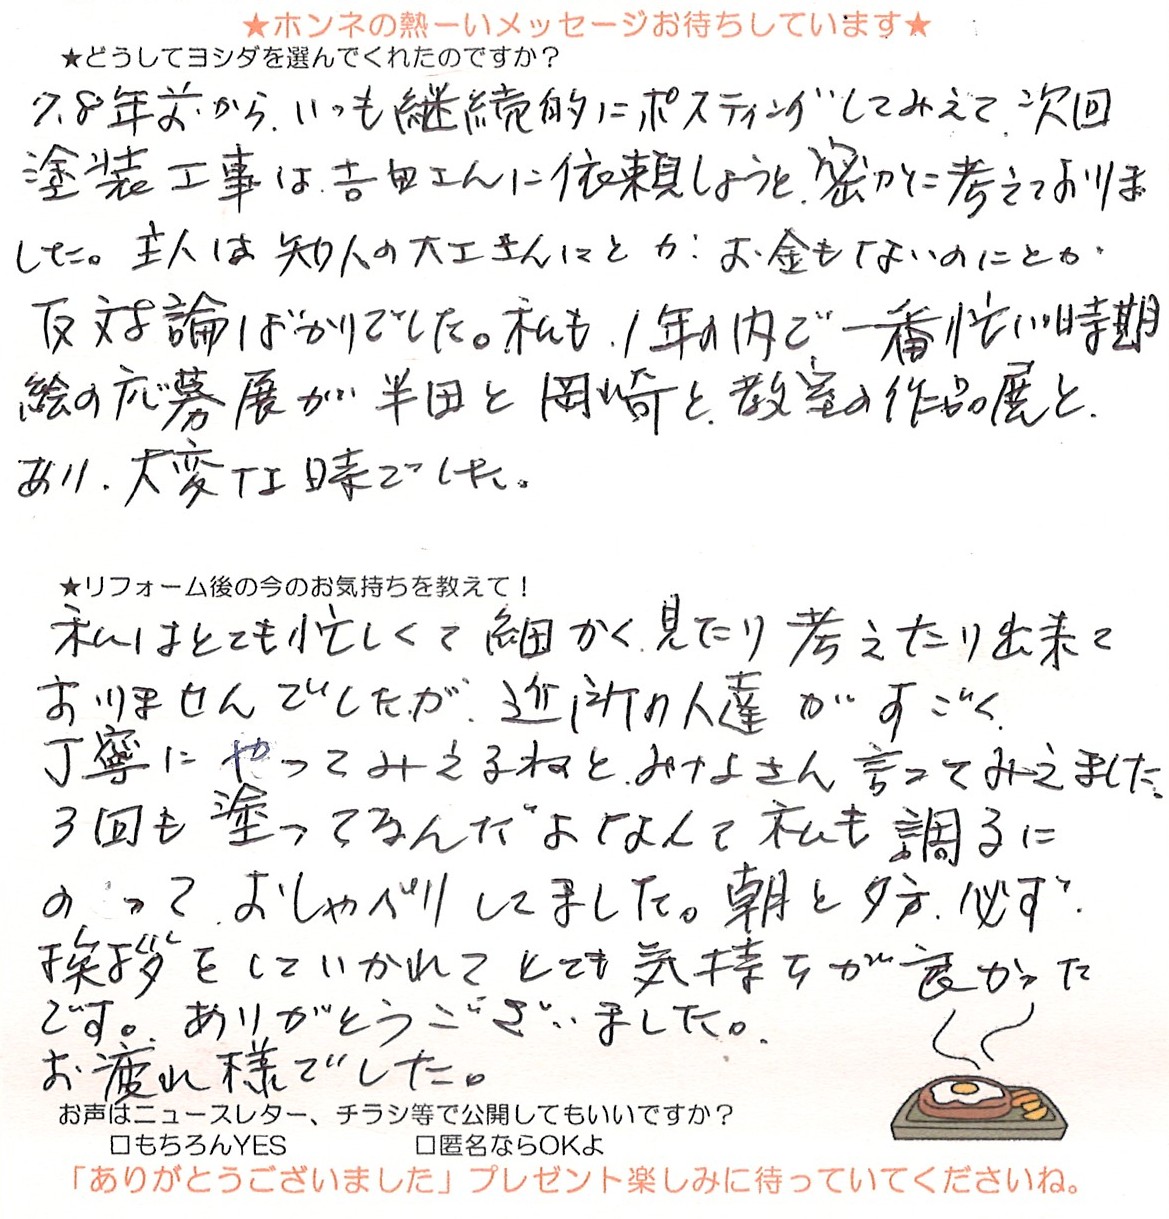 ★ホンネの熱ーいメッセージお待ちしています★
★どうしてヨシダを選んでくれたのですか？
7.8年前から、いつも継続的にポスティングしてみえて、次回
塗装工事は、吉田さんに依頼しようと、密かに考えておりま
した。主人は知人の大工さんにとか、お金もないのにとか
反対論ばかりでした。私も、1年の内で一番忙しい時期
絵の応募展が半田と岡崎と、教室の作品展と、
あり、大変な時でした。
★リフォーム後の今のお気持ちを教えて！
私はとても忙しくて細かく見たり考えたり出来て
おりませんでしたが、近所の人達がすごく
丁寧にやってみえるねと、みなさん言ってみえました。
3回も塗ってるんだよなんて私も調るに
のって、おしゃべりしてました。朝と夕方、必ず
挨拶をしていかれてとても気持ちが良かった
です。ありがとうございました。
お疲れ様でした。
お声はニュースレター、チラシ等で公開してもいいですか？
□もちろんYES □匿名ならOKよ
「ありがとうございました」プレゼント楽しみに待っていてくださいね。